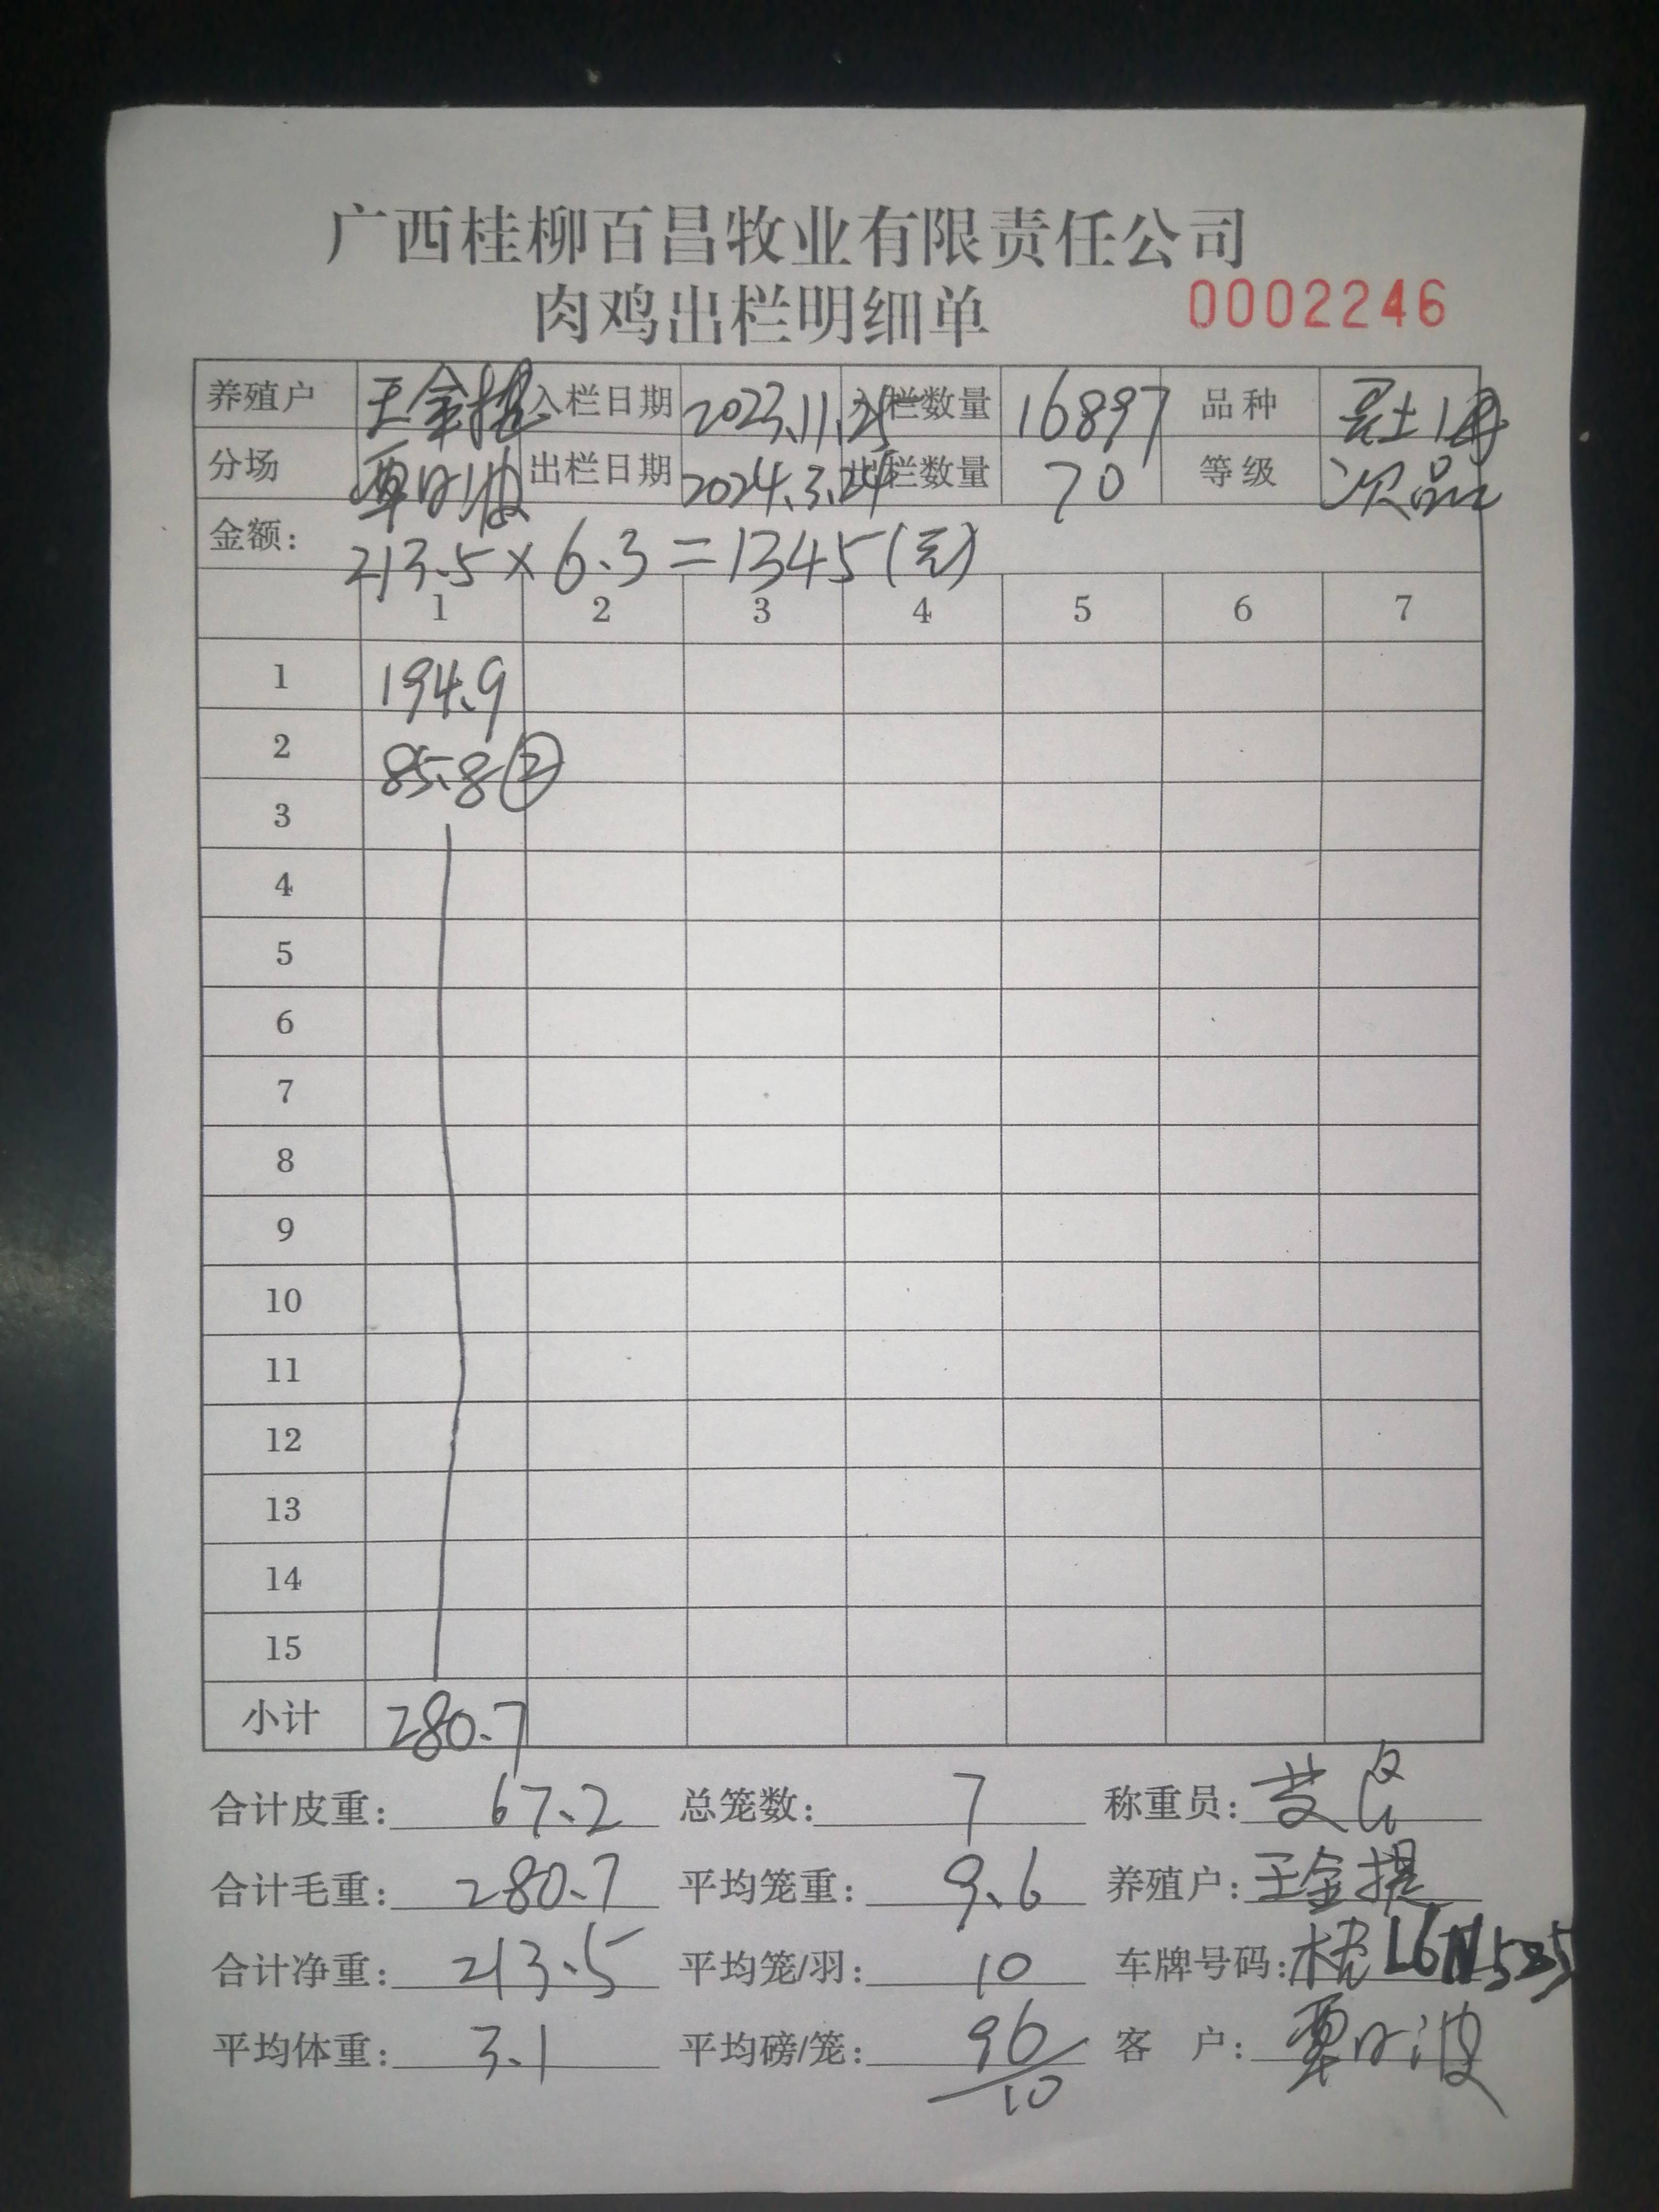 广西桂柳百昌牧业有限责任公司
肉鸡出栏明细单 0002246
养殖户 王金提 入栏日期 2023.11.25 栏数量 16897 品种 土
分场 覃日波 出栏日期 2024.3.24 栏数量 70 等级 次品
金额: 213.5×6.3=1345(元)
1 2 3 4 5 6 7
1 194.9
2 85.8②
3
4
5
6
7
8
9
10
11
12
13
14
15
小计 280.7
合计皮重: 67.2 总笼数: 7 称重员:
合计毛重: 280.7 平均笼重: 9.6 养殖户: 王金提
合计净重: 213.5 平均笼/羽: 10 车牌号码: 桂L6N525
平均体重: 3.1 平均磅/笼: 96/10 客户: 覃日波